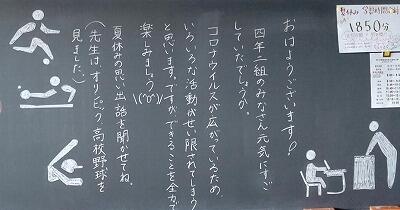 おはようございます！
四年二組のみなさん元気にすご
していたでしょうか。
コロナウイルスが広がっているため、
いろいろな活動がせい限されてしまう
と思います。ですが、できることを全力で
楽しみましょう\(^o^)/
夏休みの思い出話を聞かせてね。
(先生は、オリンピック、高校野球を
見ました。)
1850分